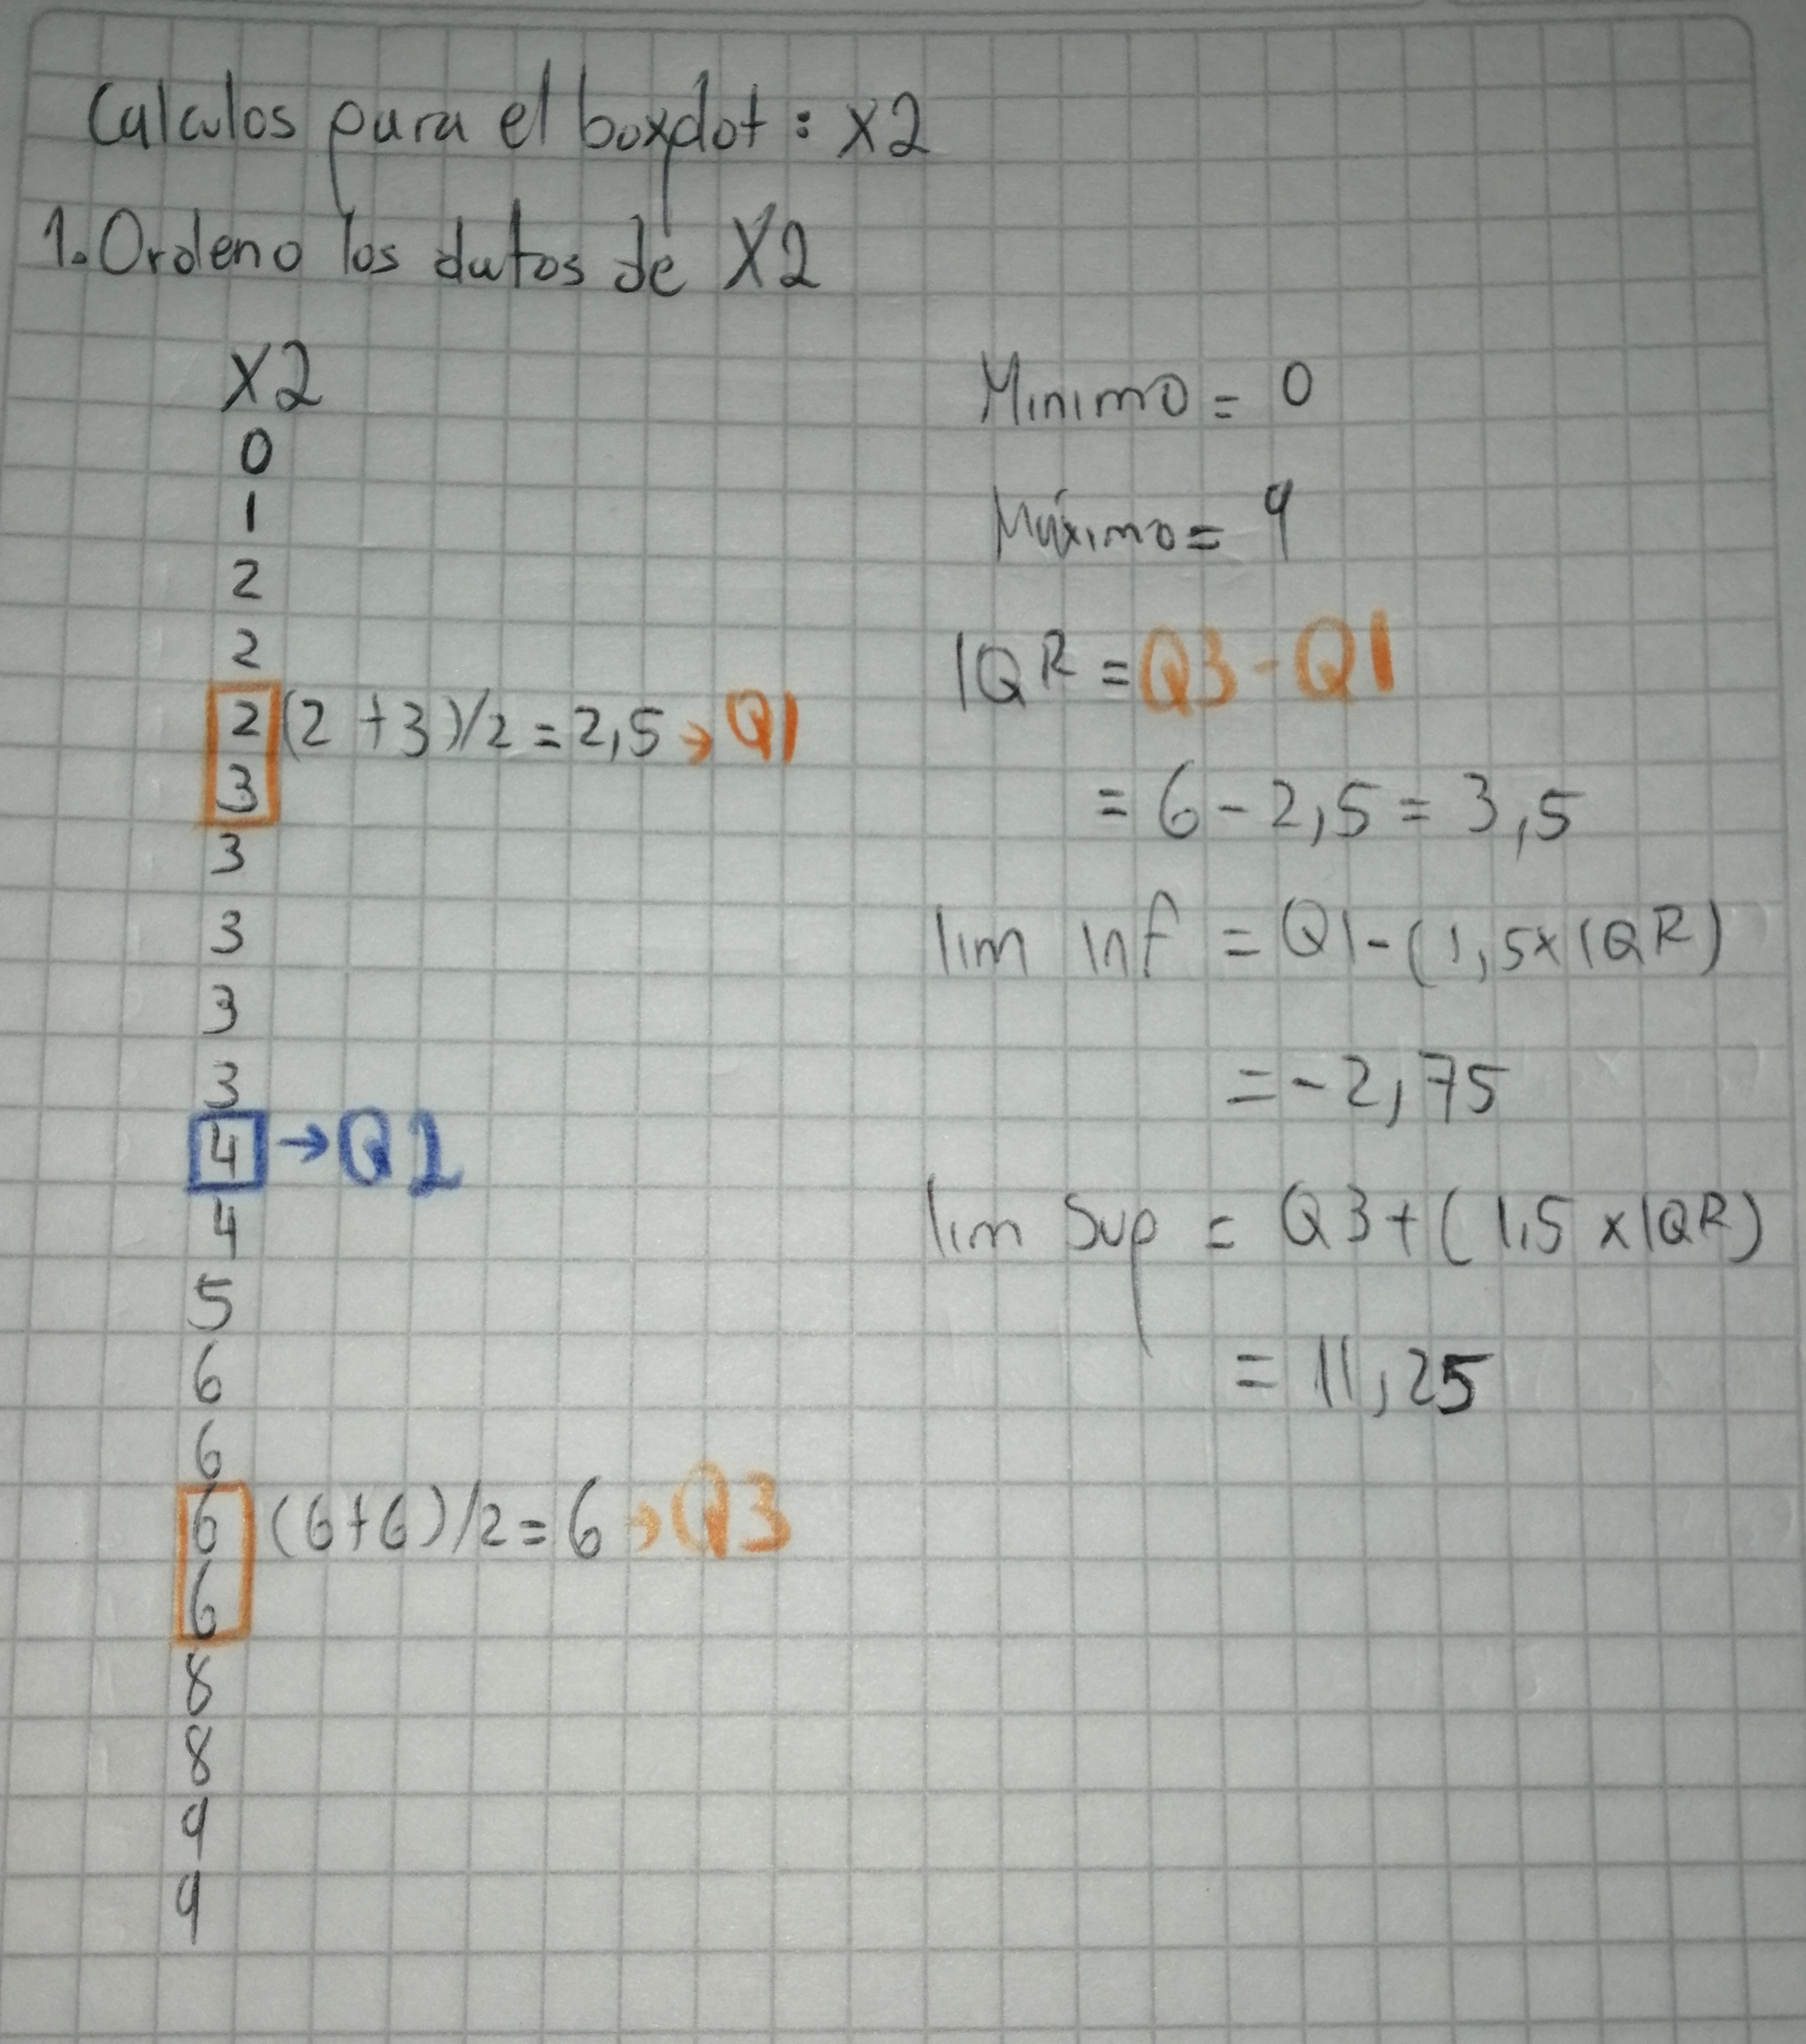 Calculos para el boxplot : X2
1. Ordeno los datos de X2
X2
0
1
2
2
2 (2 + 3)/2 = 2,5 → Q1
3
3
3
3
3
4 → Q2
4
5
6
6
6 (6+6)/2 = 6 → Q3
6
8
8
9
9
Minimo = 0
Máximo = 9
IQR = Q3 - Q1
= 6 - 2,5 = 3,5
lim inf = Q1 - (1,5 x IQR)
= -2,75
lim Sup = Q3 + (1,5 x IQR)
= 11,25